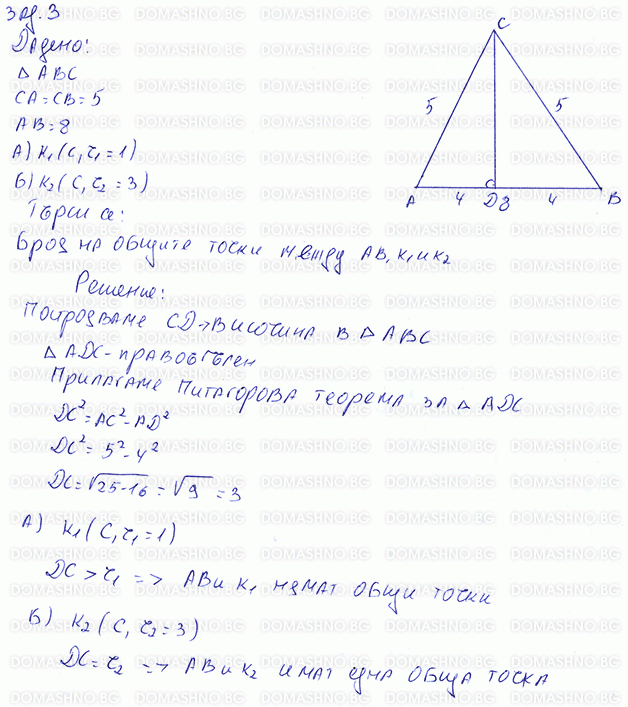 Зад.3
Дадено:
△ ABC
CA=CB=5
AB=8
A) K₁(C, r₁=1)
Б) K₂(C, r₂=3)
Търси се:
Брой на общите точки между AB, K₁ и K₂
Решение:
Построяваме CD→височина в △ ABC
△ ADC - правоъгълен
Прилагаме Питагорова теорема за △ ADC
DC²=AC²-AD²
DC²=5²-4²
DC=√25-16=√9=3
A) K₁(C, r₁=1)
DC>r₁ => AB и K₁ нямат общи точки
Б) K₂(C, r₂=3)
DC=r₂ => AB и K₂ имат една обща точка
C
5
5
A
4
D
8
4
B
DOMASHNO.BG